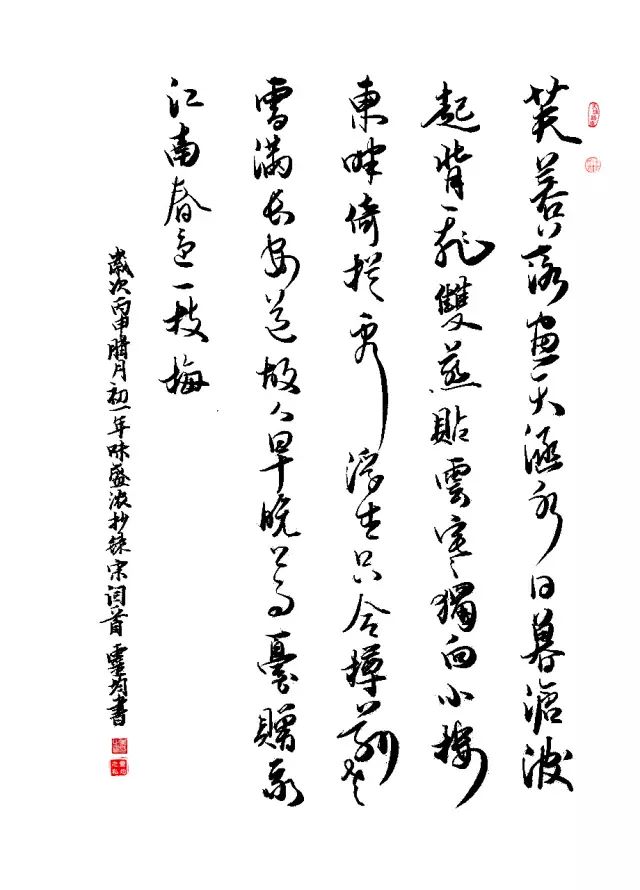 芙蓉落畫天涵水日暮滄波
起背飛雙燕貼雲寒獨向小樓
東畔倚栏看浮生只合樽前老
雪滿長安道故人早晚上高臺贈我
江南春色一枝梅
歲次丙申腊月初一年味盛浓抄録宋词一首靈均書